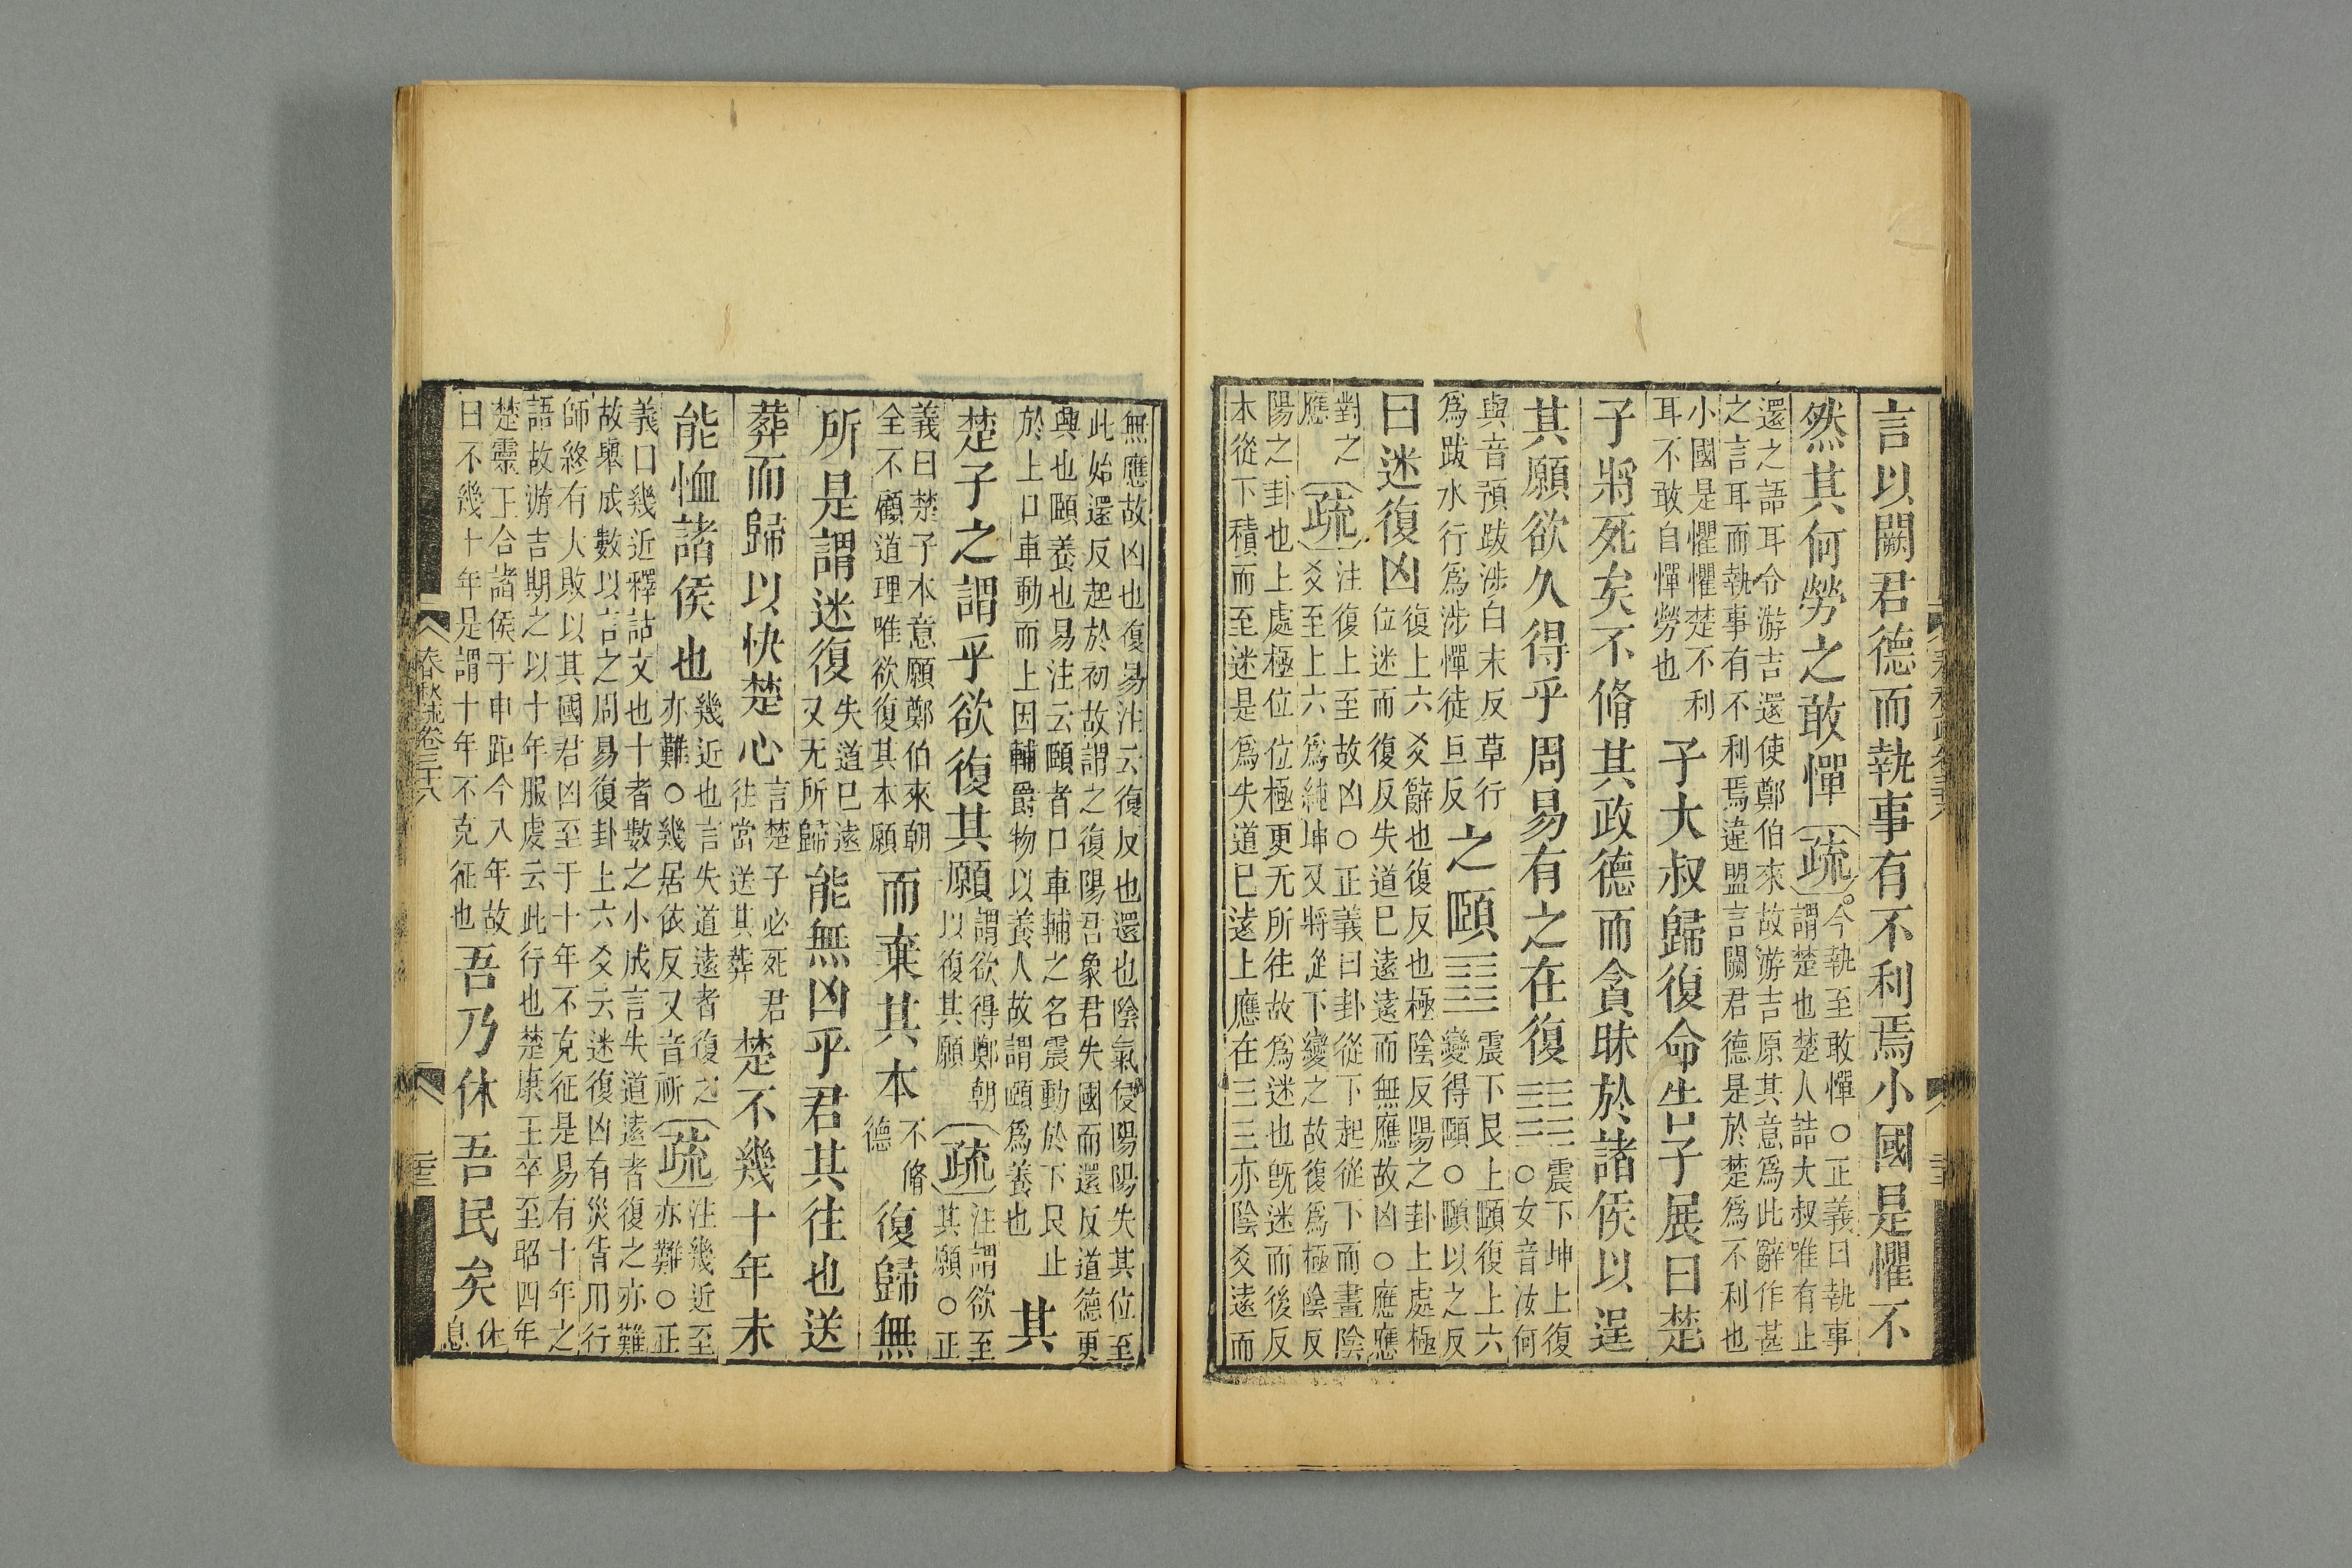 言以闕君德而執事有不利焉小國是懼不
然其何勞之敢憚
疏
今執至敢憚○正義曰執事
謂楚也楚人詰大叔唯有止
還之語耳令游吉還使鄭伯來故游吉原其意爲此辭作甚
之言耳而執事有不利焉違盟言闕君德是於楚爲不利也
小國是懼懼楚不利
耳不敢自憚勞也
子大叔歸復命告子展曰楚
子將死矣不脩其政德而貪昧於諸侯以逞
其願欲久得乎周易有之在復
震下坤上復
○女音汝何
與音預跋涉白末反草行
爲跋水行爲涉憚徒旦反
之頤
震下艮上頤復上六
變得頤○頤以之反
曰迷復凶
復上六爻辭也復反也極陰反陽之卦上處極
位迷而復反失道已遠遠而無應故凶○應應
對之
應
疏
注復上至故凶○正義曰卦從下起從下而畫陰
爻至上六爲純坤又將從下變之故復爲極陰反
陽之卦也上處極位位極更无所往故爲迷也旣迷而後反
本從下積而至迷是爲失道已遠上應在三三亦陰爻遠而
春秋疏卷三十八
無應故凶也復易注云復反也還也陰氣侵陽陽失其位至
此始還反起於初故謂之復陽君象君失國而還反道德更
興也頤養也易注云頤者口車輔之名震動於下艮止
於上口車動而上因輔爵物以養人故謂頤爲養也
其
楚子之謂乎欲復其願
謂欲得鄭朝
以復其願
疏
注謂欲至
其願○正
義曰楚子本意願鄭伯來朝
全不顧道理唯欲復其本願
而棄其本
不脩
德
復歸無
所是謂迷復
失道已遠
又无所歸
能無凶乎君其往也送
葬而歸以快楚心
言楚子必死君
往當送其葬
楚不幾十年未
能恤諸侯也
幾近也言失道遠者復之
亦難○幾居依反又音祈
疏
注幾近至
亦難○正
義曰幾近釋詁文也十者數之小成言失道遠者復之亦難
故舉成數以言之周易復卦上六爻云迷復凶有災眚用行
師終有大敗以其國君凶至于十年不克征是易有十年之
語故游吉期之以十年服虔云此行也楚康王卒至昭四年
楚靈王合諸侯于申距今八年故
曰不幾十年是謂十年不克征也
吾乃休吾民矣
休
息
春秋疏卷三十八
二十三